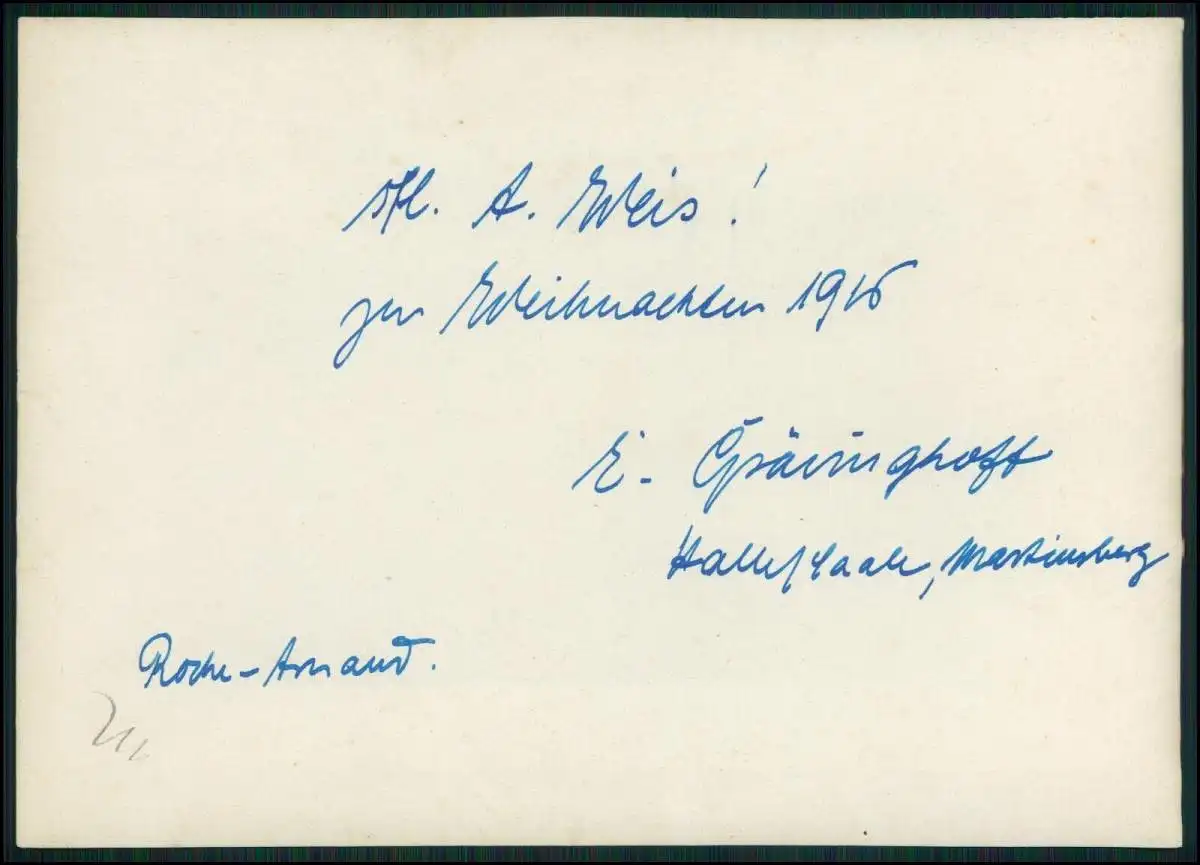 A. Weis!
zu Weihnachten 1916
E. Grävinghoff
Halle/Saale, Martinsberg
Roche-Arnaud.